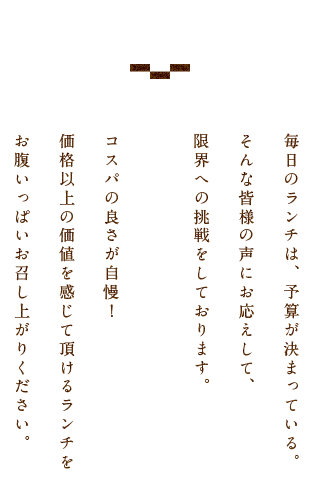 毎日のランチは、予算が決まっている。
そんな皆様の声にお応えして、
限界への挑戦をしております。
コスパの良さが自慢！
価格以上の価値を感じて頂けるランチを
お腹いっぱいお召し上がりください。